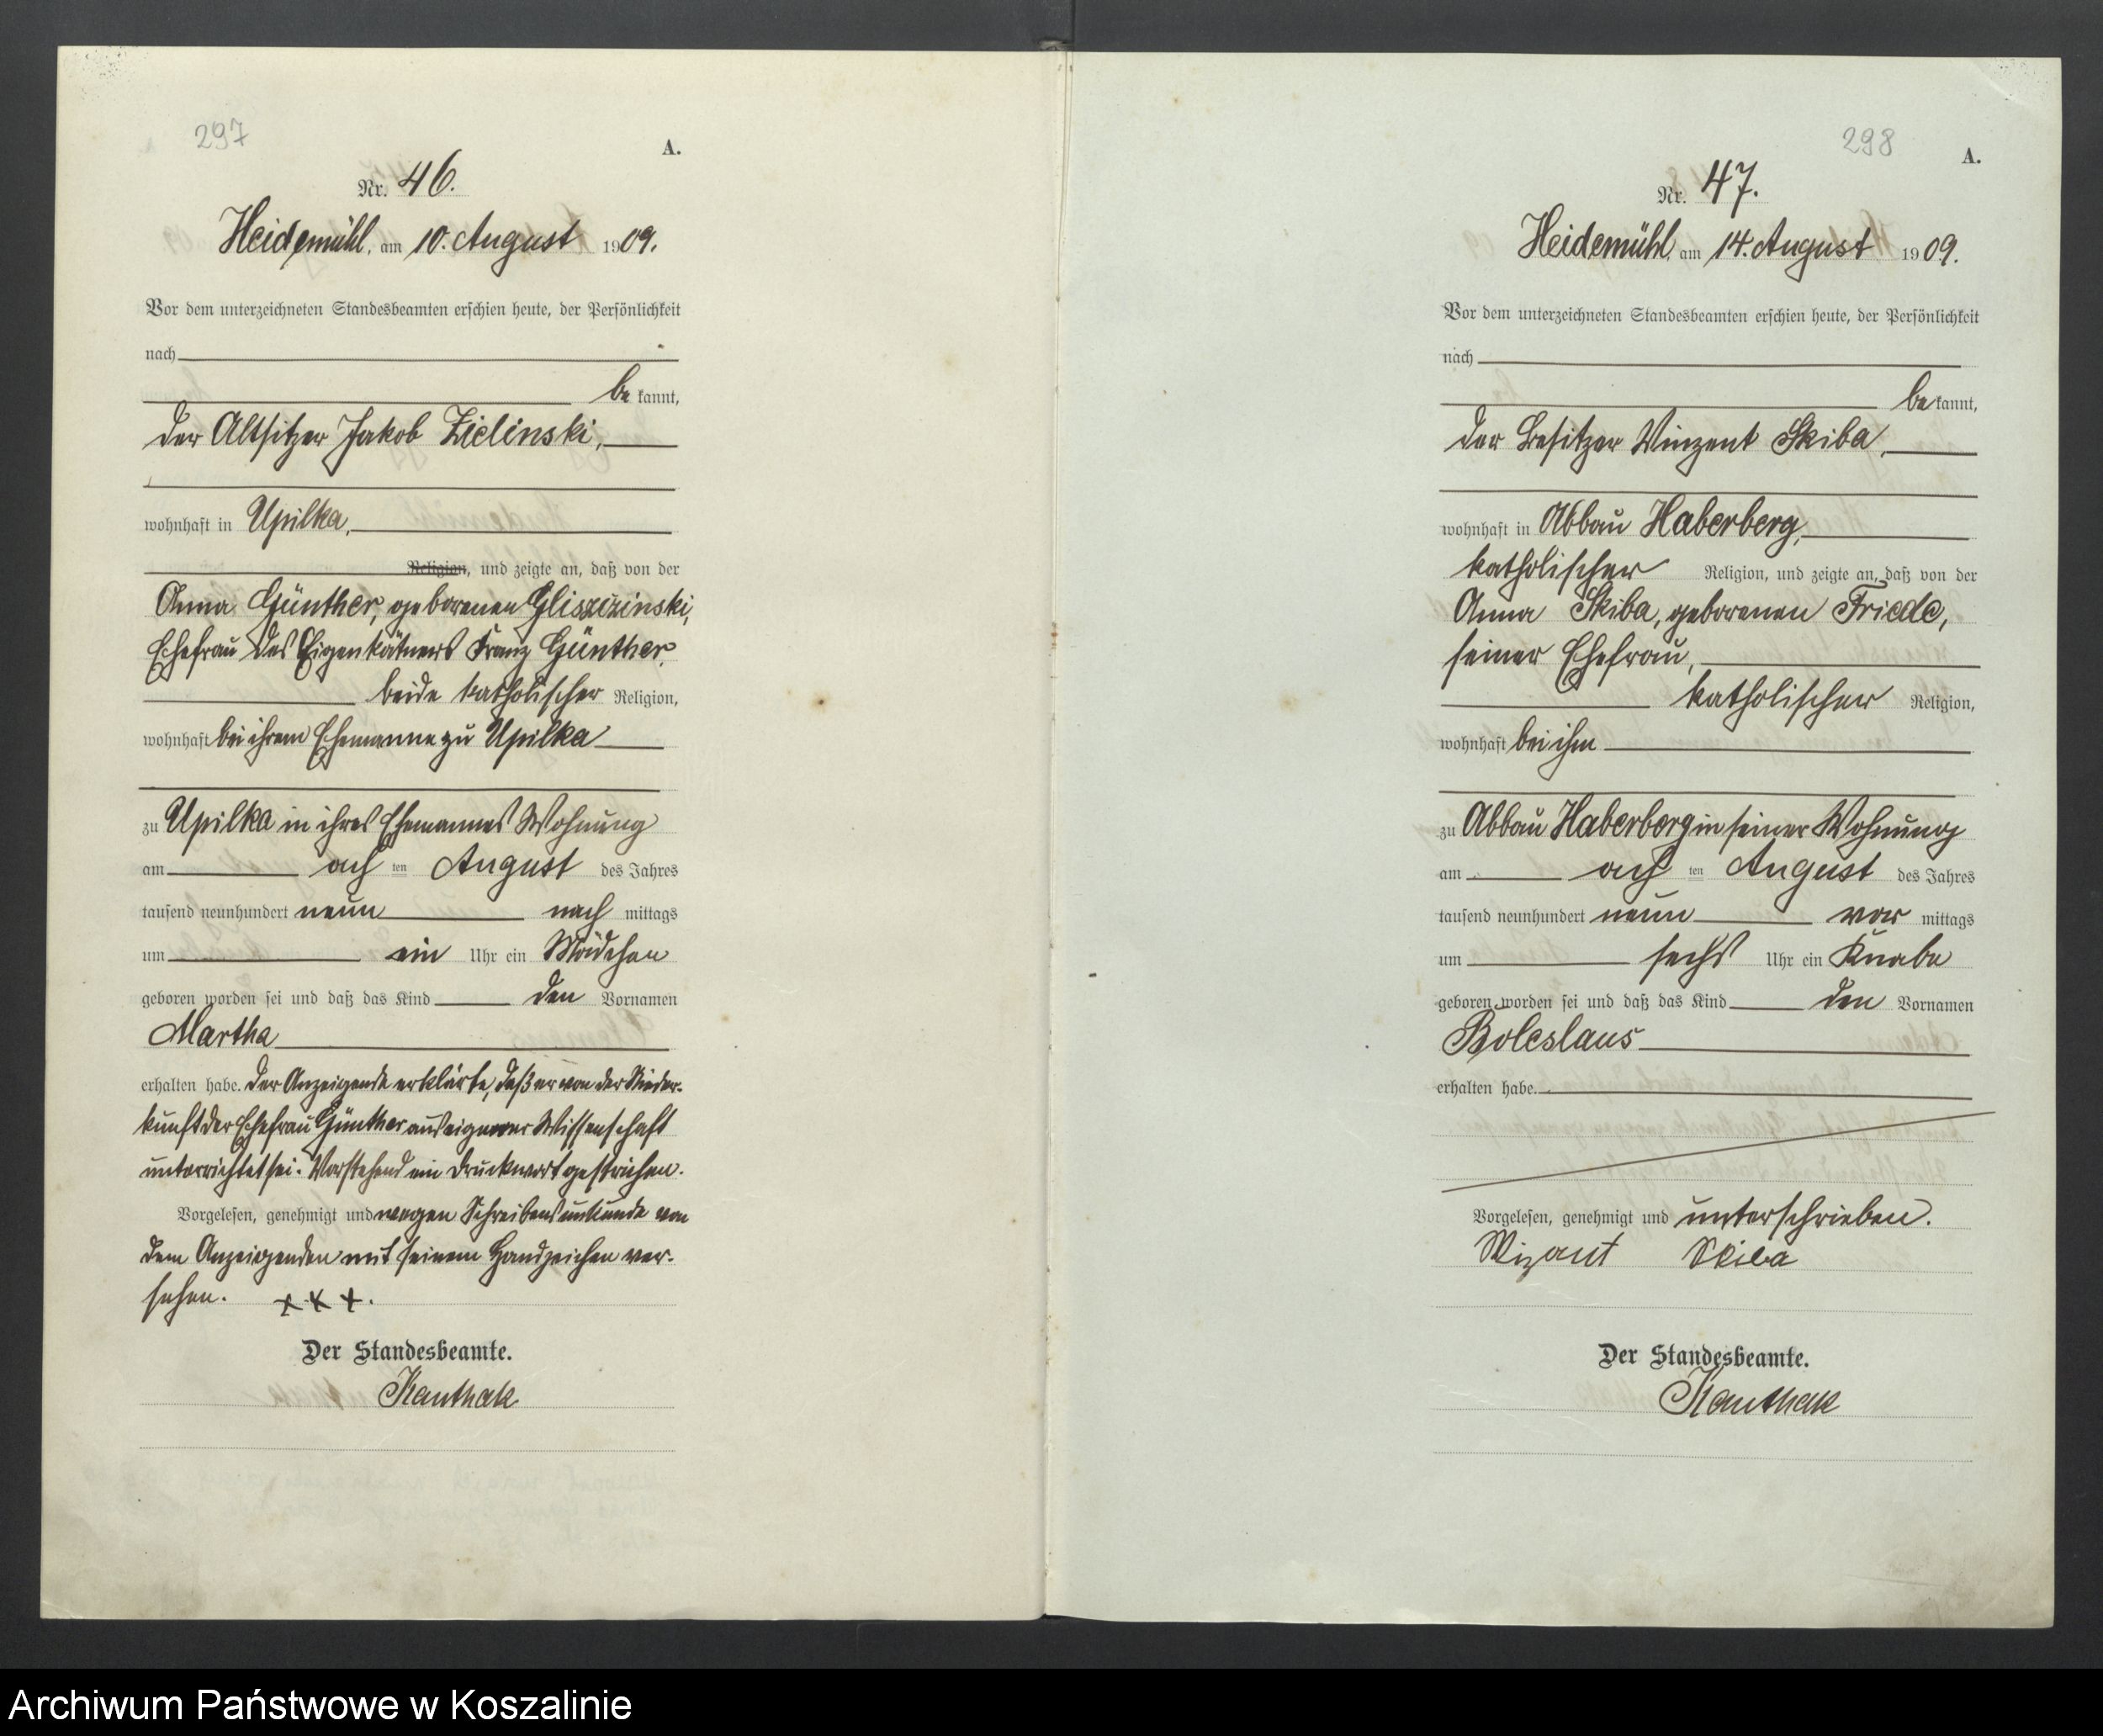 297
A.
Nr. 46.
Heidemühl, am 10. August 1909.
Vor dem unterzeichneten Standesbeamten erschien heute, der Persönlichkeit
nach
be kannt,
der Altsitzer Jakob Zielinski,
wohnhaft in Upilka,
Religion, und zeigte an, daß von der
Anna Günther, geborenen Gliszizinski,
Ehefrau des Eigenkätners Franz Günther,
beide katholischer Religion,
wohnhaft bei ihrem Ehemanne zu Upilka
zu Upilka in ihres Ehemannes Wohnung
am acht ten August des Jahres
tausend neunhundert neun nach mittags
um ein Uhr ein Mädchen
geboren worden sei und daß das Kind den Vornamen
Martha
erhalten habe. Der Anzeigende erklärte, daß er von der Nieder-
kunft der Ehefrau Günther aus eigener Wissenschaft
unterrichtet sei. Vorstehend ein Druckwort gestrichen.
Vorgelesen, genehmigt und wegen Schreibensunkunde von
dem Anzeigenden mit seinem Handzeichen ver-
sehen. + + +.
Der Standesbeamte.
Kanthak
298
A.
Nr. 47.
Heidemühl, am 14. August 1909.
Vor dem unterzeichneten Standesbeamten erschien heute, der Persönlichkeit
nach
be kannt,
der Besitzer Vinzent Skiba,
wohnhaft in Abbau Haberberg,
katholischer Religion, und zeigte an, daß von der
Anna Skiba, geborenen Friede,
seiner Ehefrau,
katholischer Religion,
wohnhaft bei ihm
zu Abbau Haberberg in seiner Wohnung
am acht ten August des Jahres
tausend neunhundert neun vor mittags
um sechs Uhr ein Knabe
geboren worden sei und daß das Kind den Vornamen
Boleslaus
erhalten habe.
Vorgelesen, genehmigt und unterschrieben.
Wizant Skiba
Der Standesbeamte.
Kanthak
Archiwum Państwowe w Koszalinie